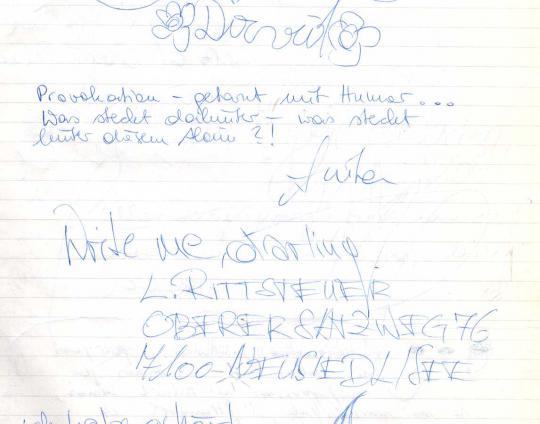 Provokation - getarnt mit Humor...
Was steckt dahinter - was steckt
hinter diesem Alain ?!
Write me, darling
L. RITTSTEUER
OBERER SATZWEG 76
7100-NEUSIEDL/SEE
ich habe